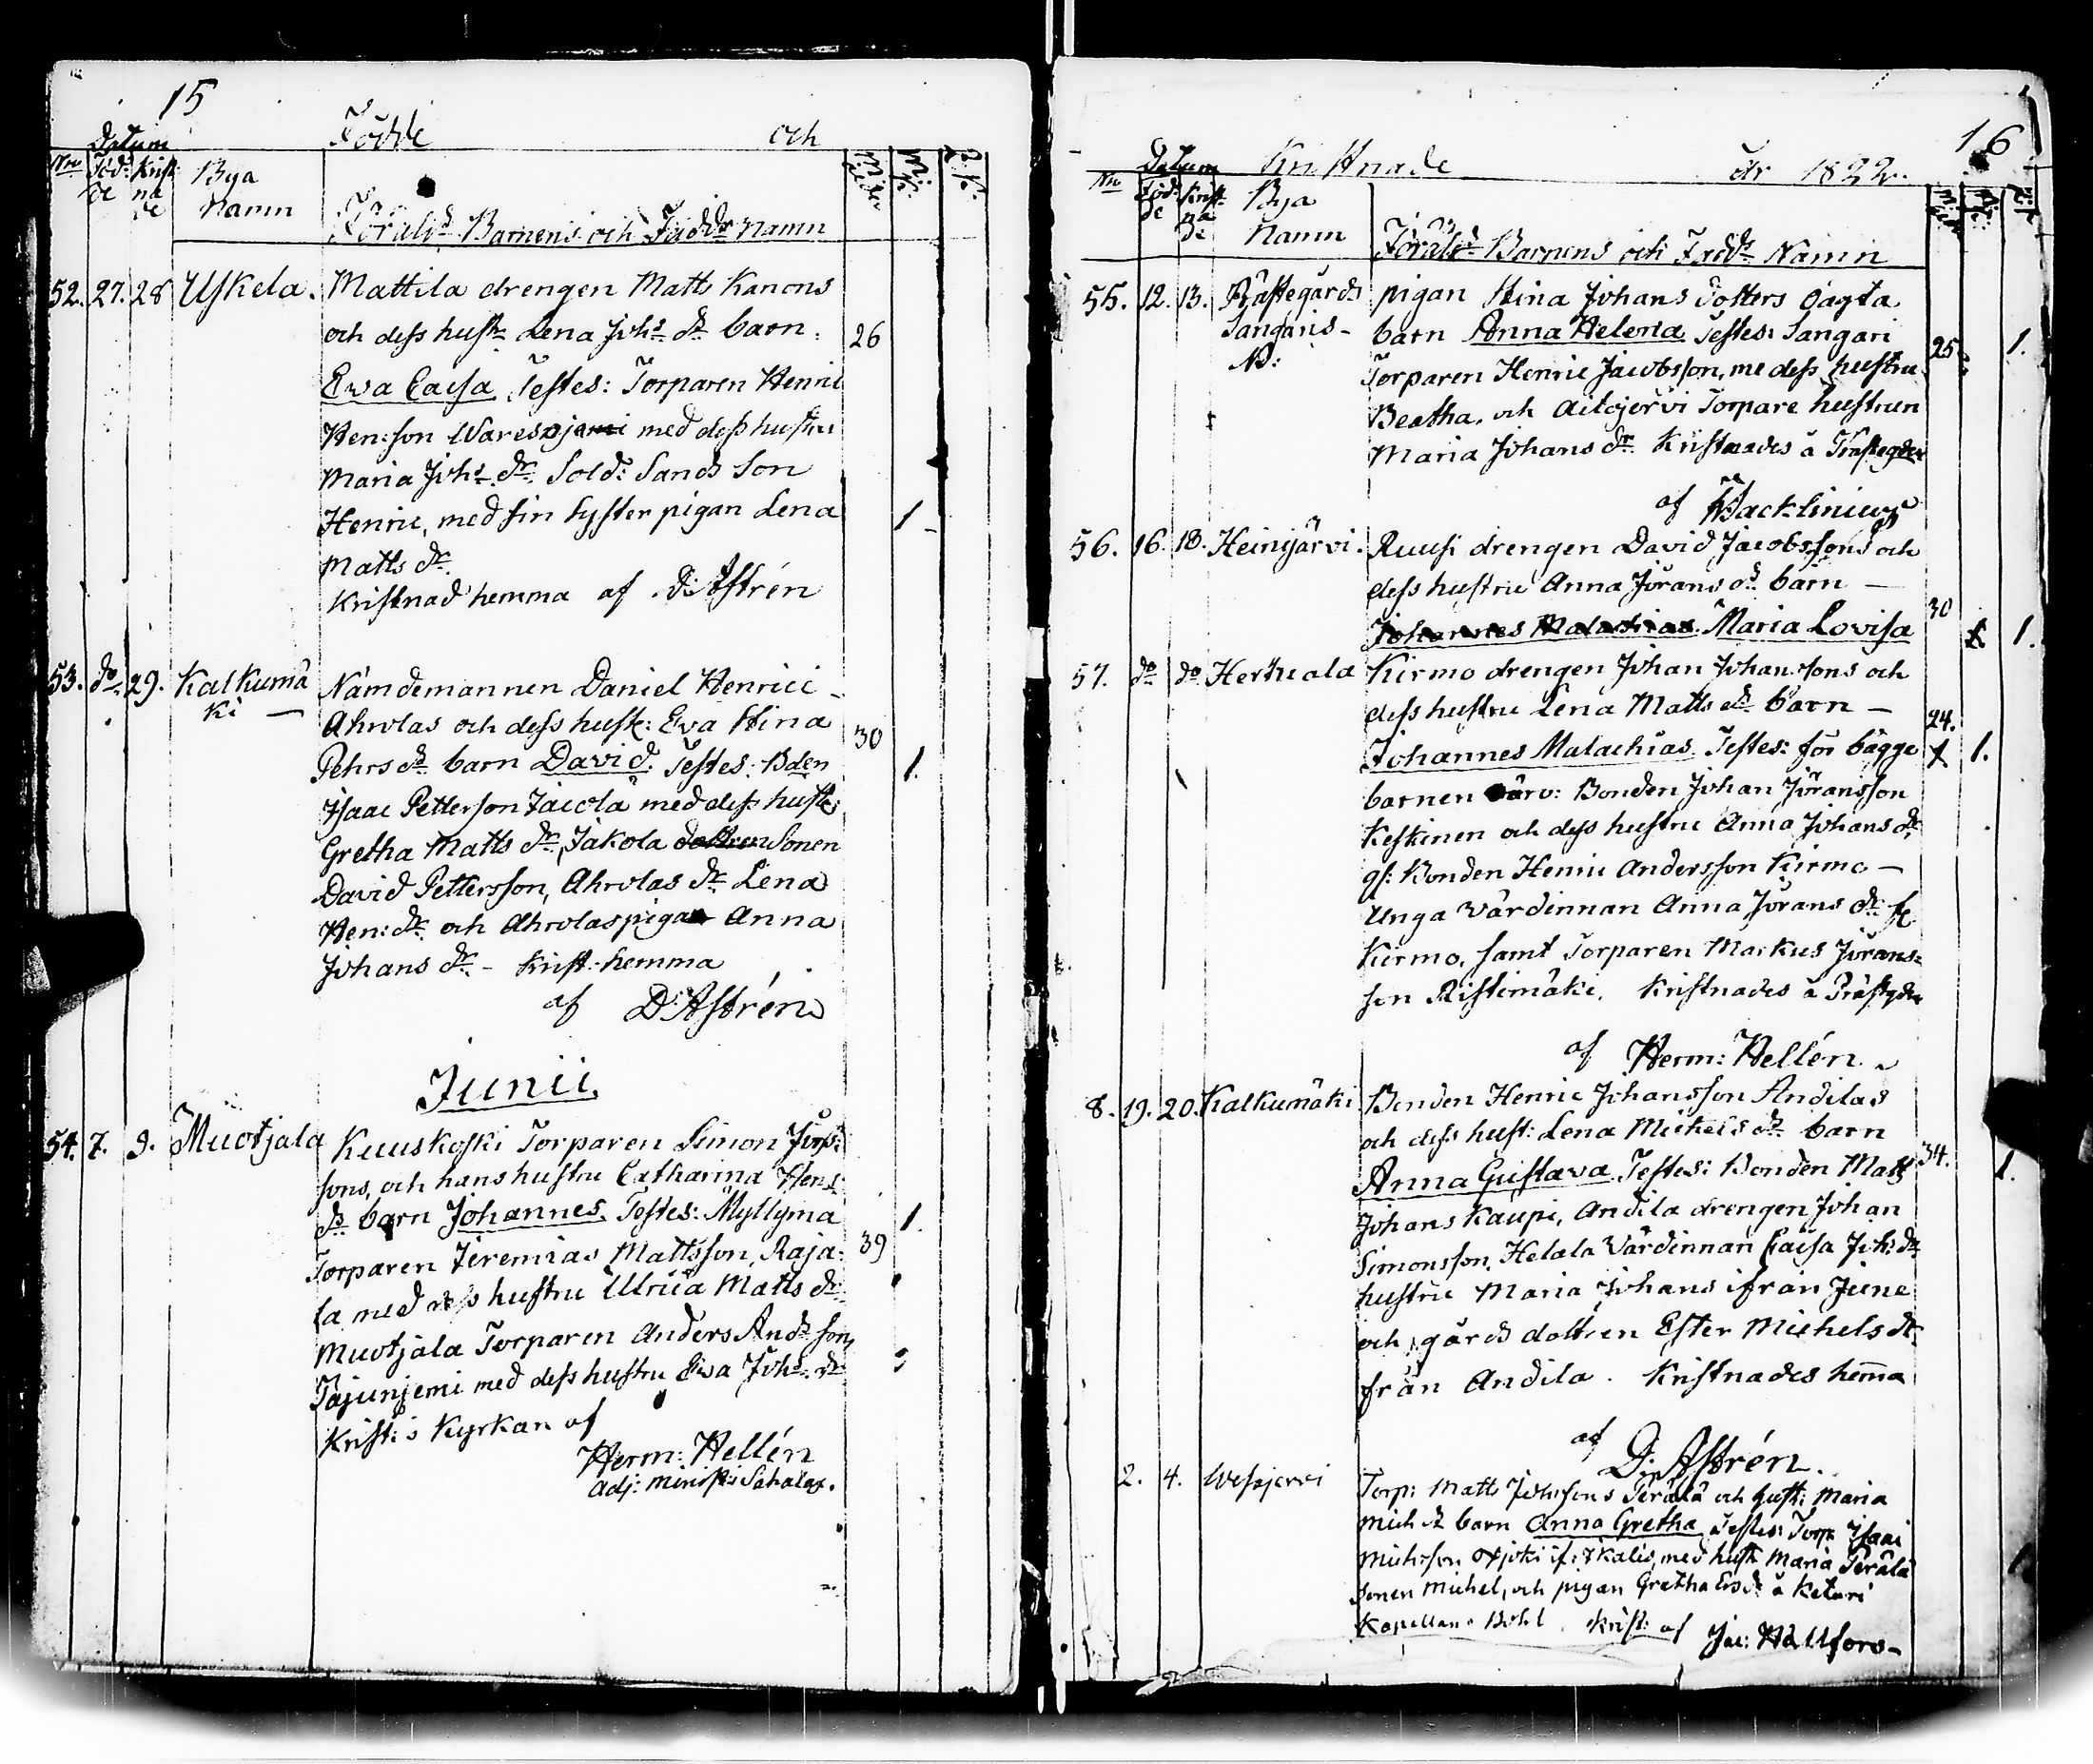 15
Födde och
Datum
Nro Föd: de Krist: na de Bya Namn
Föräld: Barnens och Faddr Namn
52. 27. 28 Uskela. Mattila drengen Matts Kanons
och dess hustr Lena Johs dr barn. 26
Ewa Caisa Testes: Torparen Henric
Hen:son med dess hustru
Maria Johs dr. Sold: Sands Son
Henric, med sin syster pigan Lena 1
Matts dr.
Kristnad hemma af D: Astrén
53. do 29. Kalkumä Nämdemannen Daniel Henrici
ki — Ahrolas och dess hust: Eva Stina 30
Pehrs dr barn David. Testes: Bden 1.
Isaac Petterson Jacola med dess hustr
Gretha Matts dr, Jakola dottren Sonen
David Pettersson, Ahrolas dr Lena
Hen: dr. och Ahrolas pigan Anna
Johans dr. - Krist: hemma
af D: Astrén
Junii.
54. 7. 9. Muotjala Kuuskoski Torparen Simon
sons, och hans hustru Catharina Hens
dr barn Johannes. Testes: Myllyma 1.
Torparen Jeremias Mattsson, Raja- 39
la med dess hustru Ulrica Matts dr
Muotjala Torparen Anders Ands son,
Tajunjemi med dess hustru Ewa Johs. dr
Krist: i Kyrkan af
Herm: Hellén
adj: minist: i Sahalax.
16
Datum Kristnade år 1822.
Nro Föd: de Krist: na de Bya Namn
Föräld: Barnens och Fadd: Namn
55. 12. 13. Prästegårds pigan Stina Johans dotters oägta
Sangaris- barn Anna Helena Testes: Sangari 25 1.
No: Torparen Henric Jacobsson, me dess hustru
Beatha, och Aitojervi Torpare hustrun
Maria Johans dr. Kristnades å Prästegden
af Wacklinius
56. 16. 18. Heinijärvi. Ruusi drengen David Jacobssons och
dess hustru Anna Jörans dr. barn — 30
Johannes Malachias. Maria Lovisa 1. 1.
57. do do Hertuala Kirmo drengen Johan Johanssons och
dess hustru Lena Matts dr barn — 24.
Johannes Malachias. Testes: för bägge 1. 1.
barnen Bonden Johan Jöransson
Keskinen och dess hustru Anna Johans dr
gl: Bonden Henric Andersson Kirmo —
Unga Wärdinnan Anna Jörans dr
Kirmo, samt Torparen Markus Jörans-
son Ristimäki. Kristnades å Prästgden
af Herm: Hellén.
8. 19. 20. Kalkumäki Bonden Henric Johansson Andilas
och dess hust: Lena Michels dr barn 34.
Anna Gustava Testes: Bonden Matts 1.
Johans Kaupi, Andila drengen Johan
Simonsson, Helala Värdinnan Caisa Johs dr
hustru Maria Johans ifrån June
och gårds dottren Ester Michels dr
från Andila. Kristnades hemma
af D: Astrén.
2. 4. Wesajervi Torp: Matts Johssons Perälä och hustr: Maria
Mich dr barn Anna Gretha Testes: Torp Isaac
Michsson med hustr Maria Perälä
Sonen Michel, och pigan Gretha å Keturi
Kapellans Krist: af Jac: Hällfors-